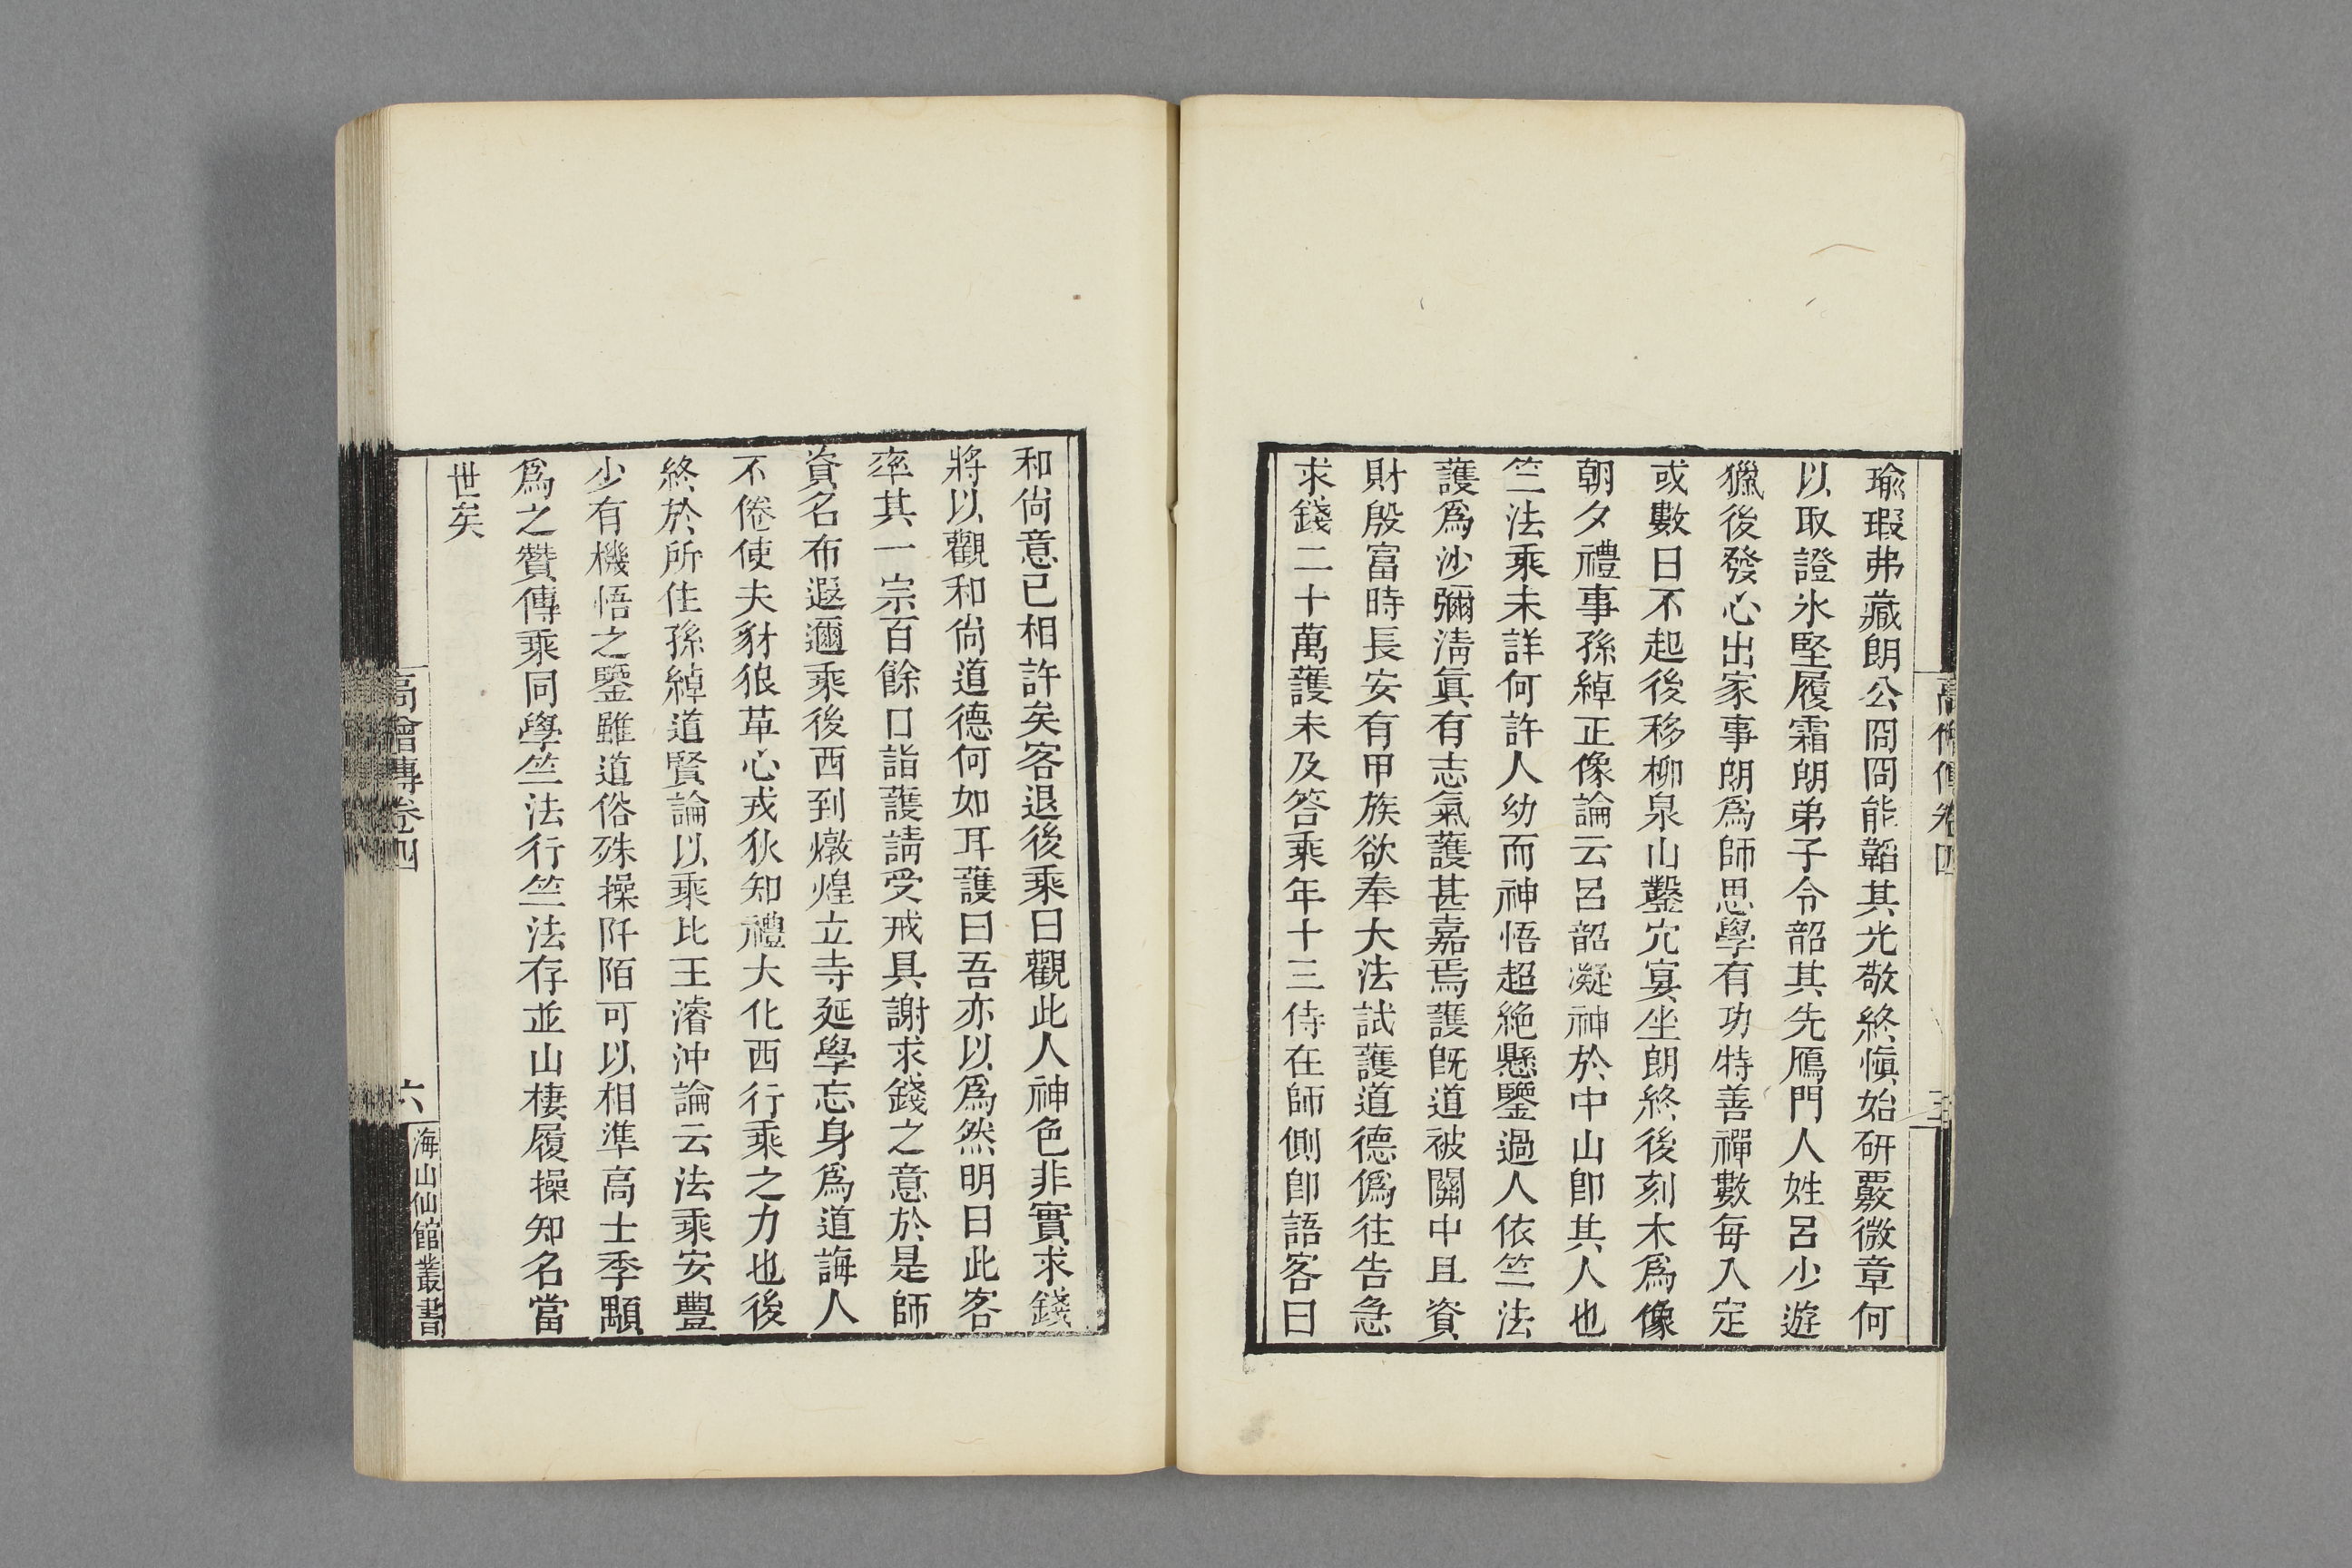 瑜瑕弗藏朗公冏冏能韜其光敬終愼始研覈微章何
以取證氷堅履霜朗弟子令韶其先鴈門人姓呂少遊
獵後發心出家事朗爲師思學有功特善禪數每入定
或數日不起後移柳泉山鑿穴宴坐朗終後刻木爲像
朝夕禮事孫綽正像論云呂韶凝神於中山卽其人也
竺法乘未詳何許人幼而神悟超絶懸鑒過人依竺法
護爲沙彌淸眞有志氣護甚嘉焉護旣道被關中且資
財殷富時長安有甲族欲奉大法試護道德僞往告急
求錢二十萬護未及答乘年十三侍在師側卽語客曰
和尙意已相許矣客退後乘曰觀此人神色非實求錢
將以觀和尙道德何如耳護曰吾亦以爲然明日此客
率其一宗百餘口詣護請受戒具謝求錢之意於是師
資名布遐邇乘後西到燉煌立寺延學忘身爲道誨人
不倦使夫豺狼革心戎狄知禮大化西行乘之力也後
終於所住孫綽道賢論以乘比王濬沖論云法乘安豐
少有機悟之鑒雖道俗殊操阡陌可以相準高士季顒
爲之贊傳乘同學竺法行竺法存並山棲履操知名當
世矣
高僧傳卷四
六
海山仙館叢書